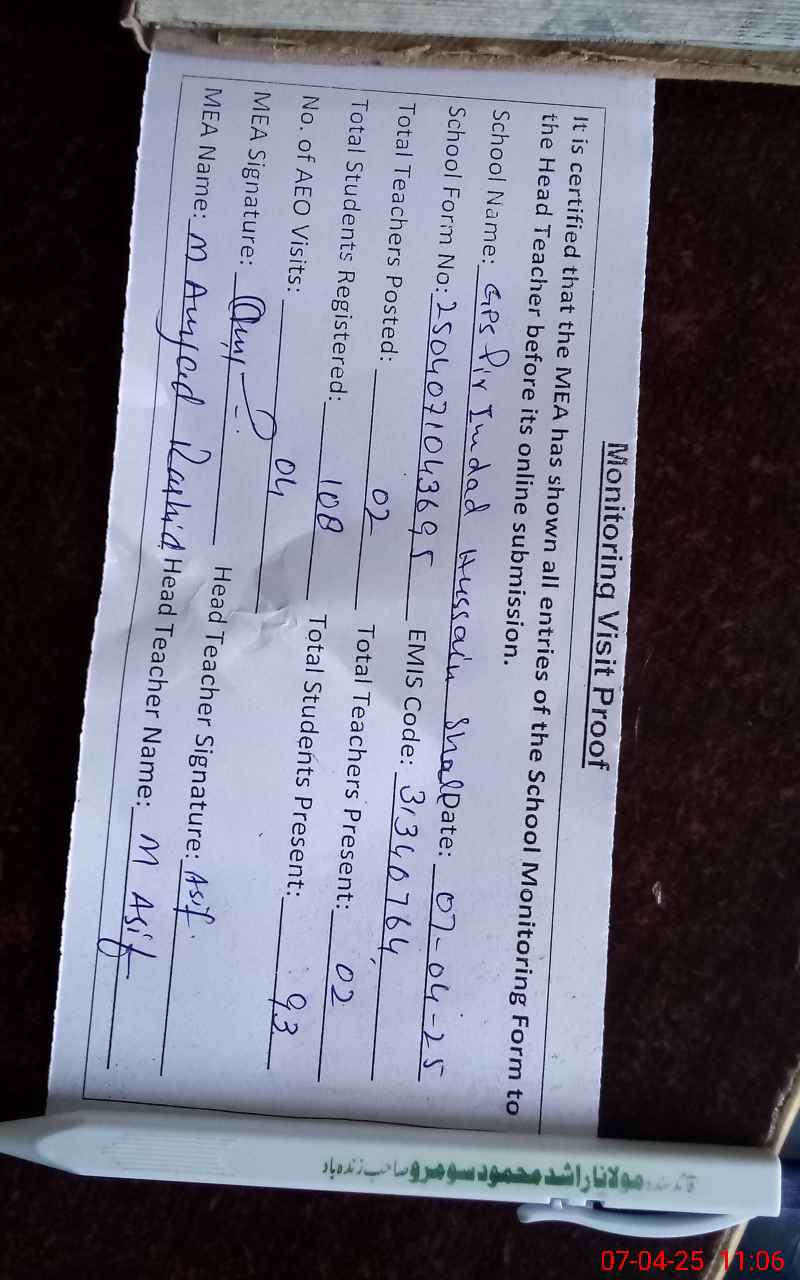 Monitoring Visit Proof
It is certified that the MEA has shown all entries of the School Monitoring Form to
the Head Teacher before its online submission.
School Name: GPS Pir Imdad Hussain Shah Date: 07-04-25
School Form No: 2504071043695 EMIS Code: 31340764
Total Teachers Posted: 02 Total Teachers Present: 02
Total Students Registered: 108 Total Students Present: 93
No. of AEO Visits: 04
MEA Signature: Head Teacher Signature: Asif
MEA Name: M Amjad Rashid Head Teacher Name: M Asif
مولانا راشد محمود سومرو صاحب زنده باد
07-04-25 11:06